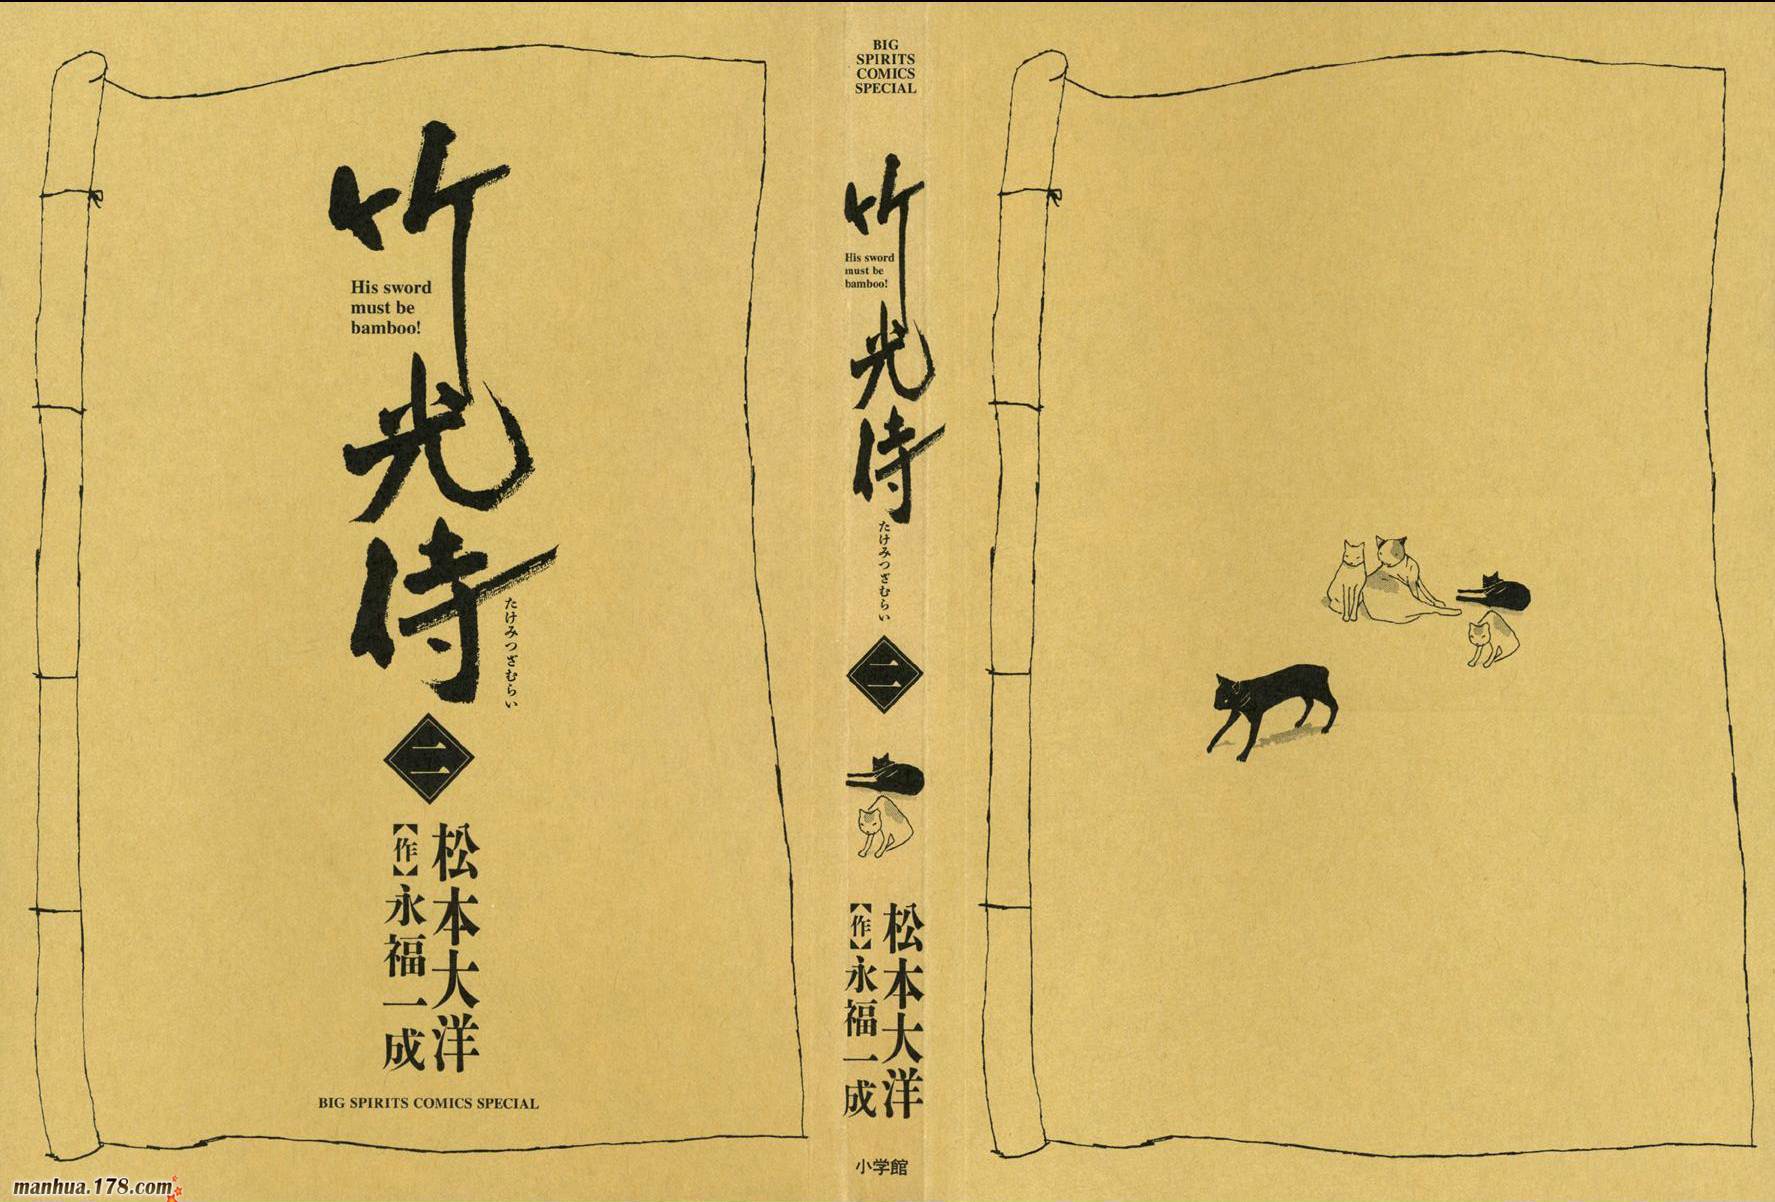 竹光侍
His sword
must be
bamboo!
たけみつざむらい
二
松本大洋
【作】永福一成
BIG SPIRITS COMICS SPECIAL
BIG
SPIRITS
COMICS
SPECIAL
竹光侍
His sword
must be
bamboo!
たけみつざむらい
二
松本大洋
【作】永福一成
小学館
manhua.178.com